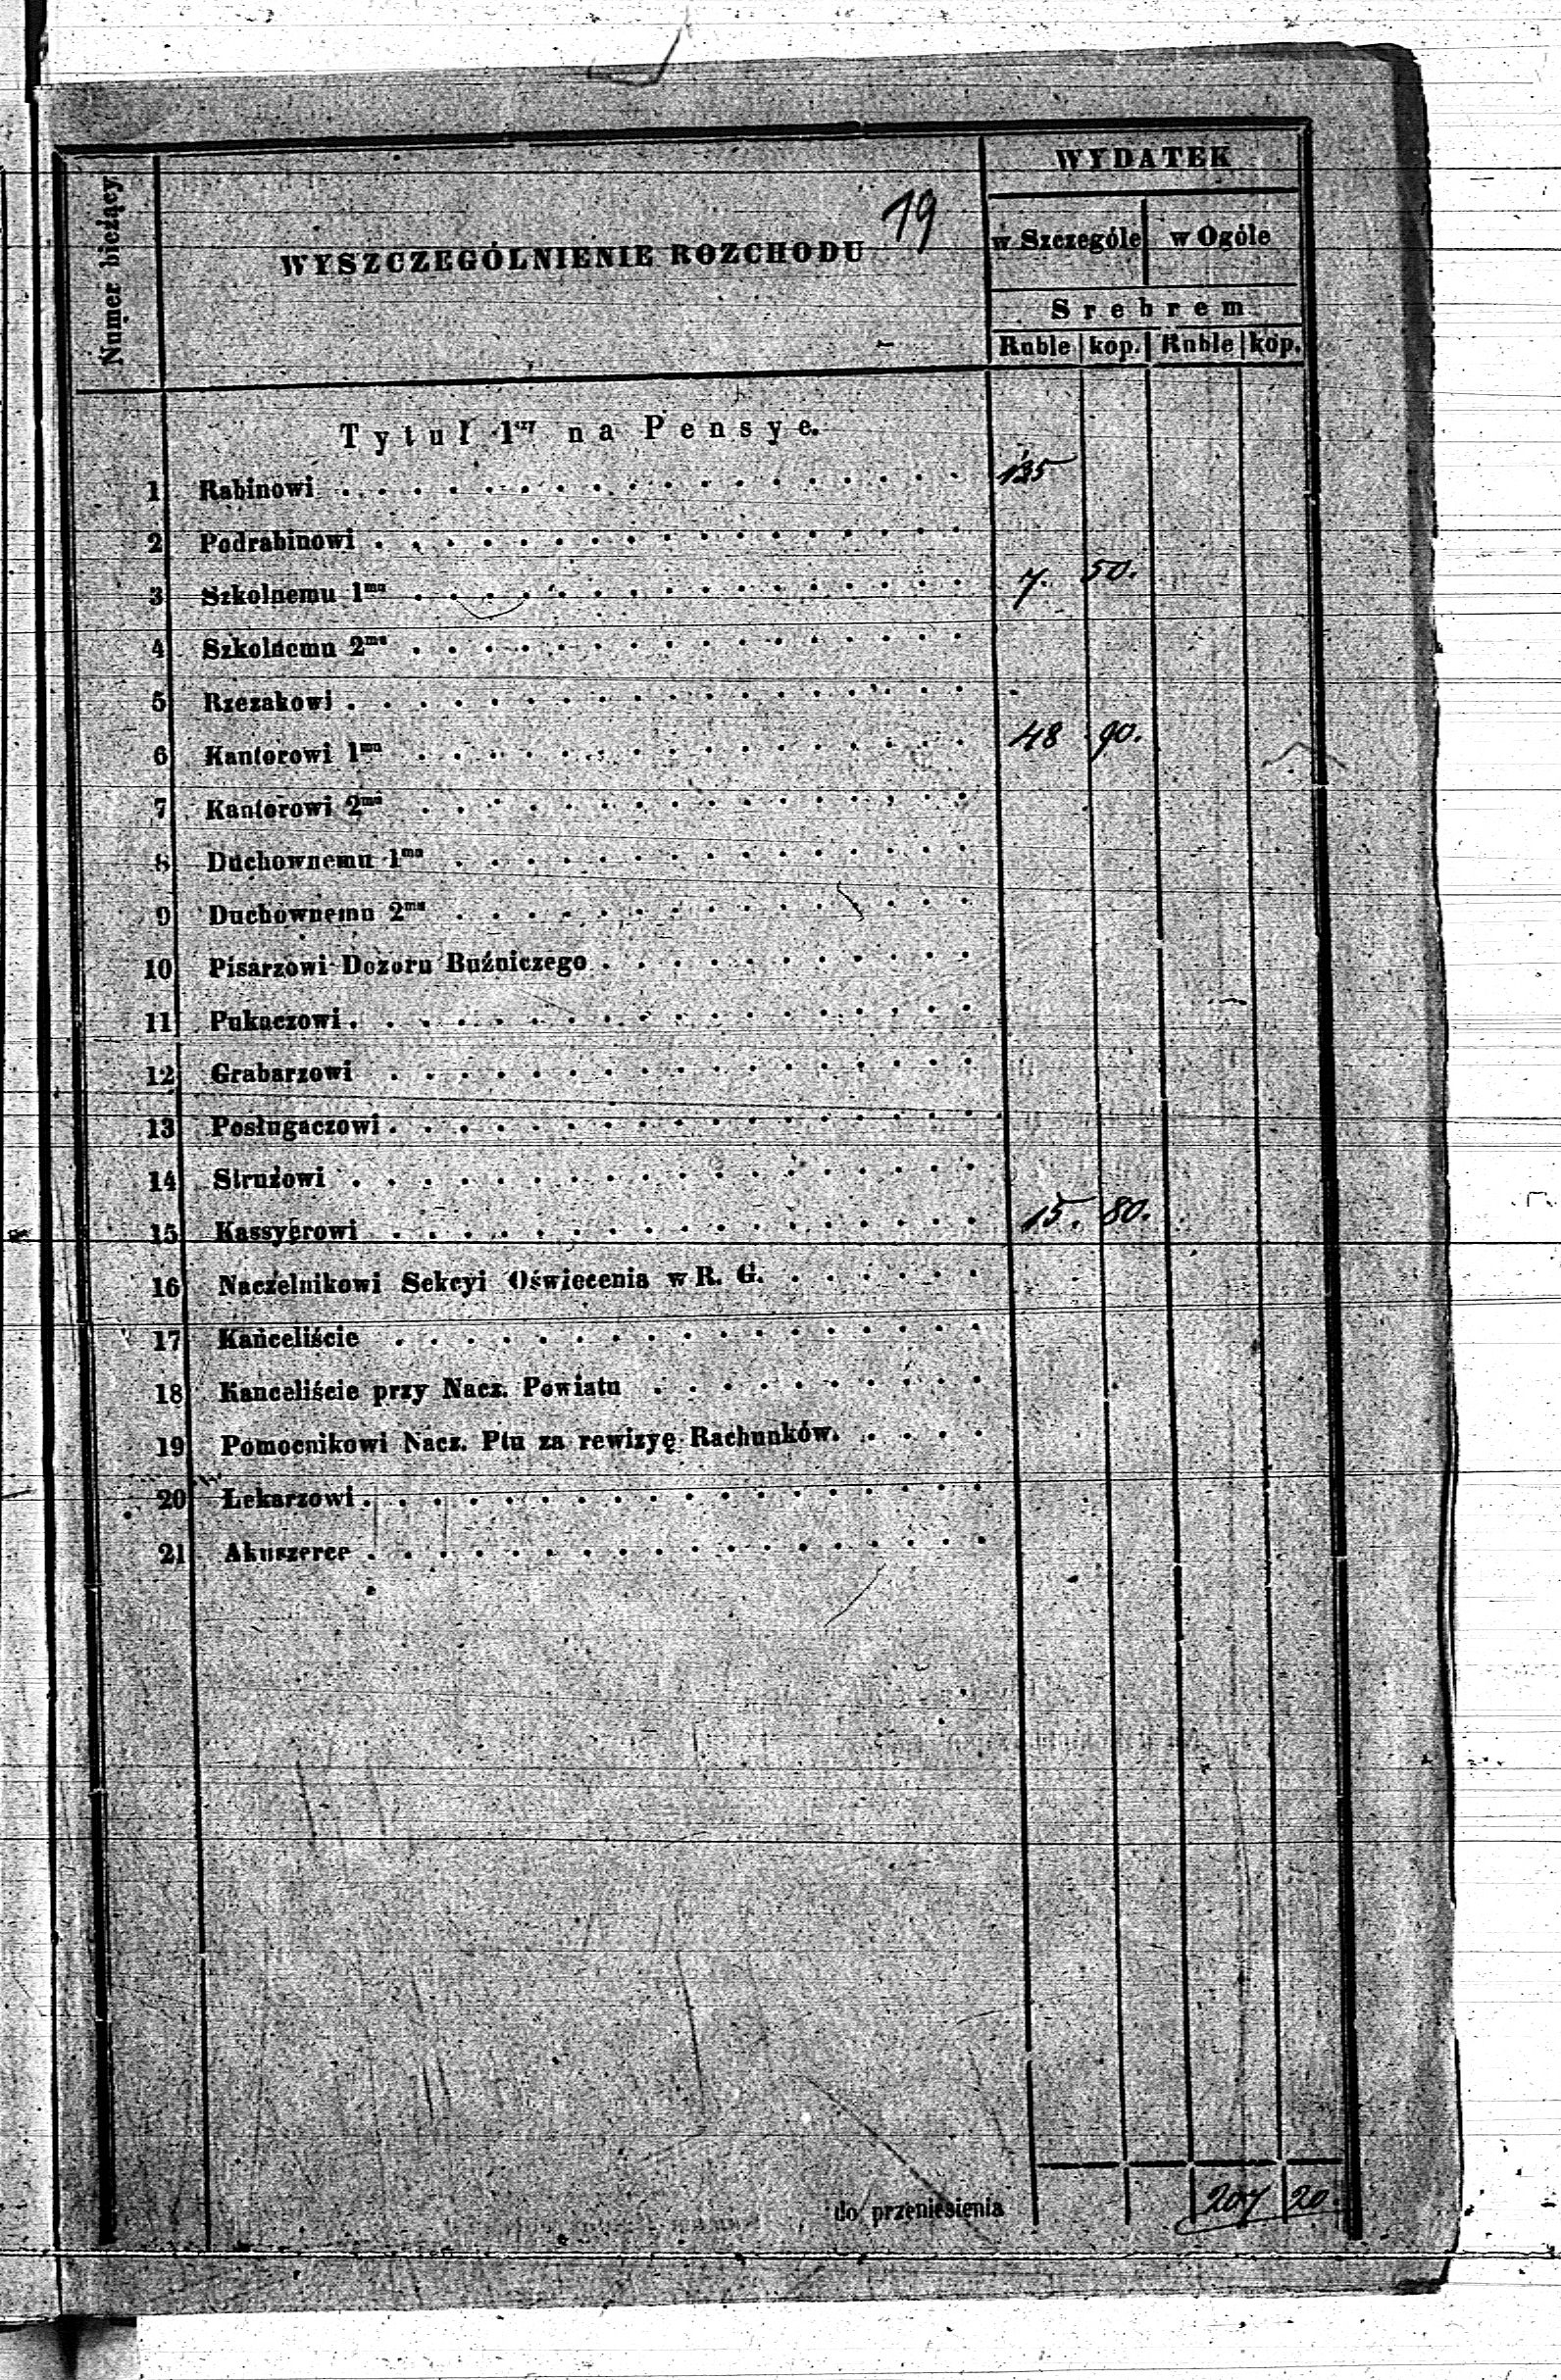 Numer bieżący
WYSZCZEGÓLNIENIE ROZCHODU
19
WYDATEK
w Szczególe w Ogóle
Srebrem
Ruble kop. Ruble kop.
Tytuł 1szy na Pensye.
1 Rabinowi . . . . . 135
2 Podrabinowi . . . . .
3 Szkolnemu 1mu . . . . . 7. 50.
4 Szkolnemu 2mu . . . . .
5 Rzezakowi . . . . .
6 Kantorowi 1mu . . . . . 48 90.
7 Kantorowi 2mu . . . . .
8 Duchownemu 1mu . . . . .
9 Duchownemu 2mu . . . . .
10 Pisarzowi Dozoru Buźniczego . . . . .
11 Pukaczowi . . . . .
12 Grabarzowi . . . . .
13 Posługaczowi . . . . .
14 Strużowi . . . . .
15 Kassyerowi . . . . . 15. 80.
16 Naczelnikowi Sekcyi Oświecenia w R. G. . . . . .
17 Kanceliście . . . . .
18 Kanceliście przy Nacz. Powiatu . . . . .
19 Pomocnikowi Nacz. Ptu za rewizyę Rachunków. . . . .
20 Lekarzowi . . . . .
21 Akuszerce . . . . .
do przeniesienia 207 20.